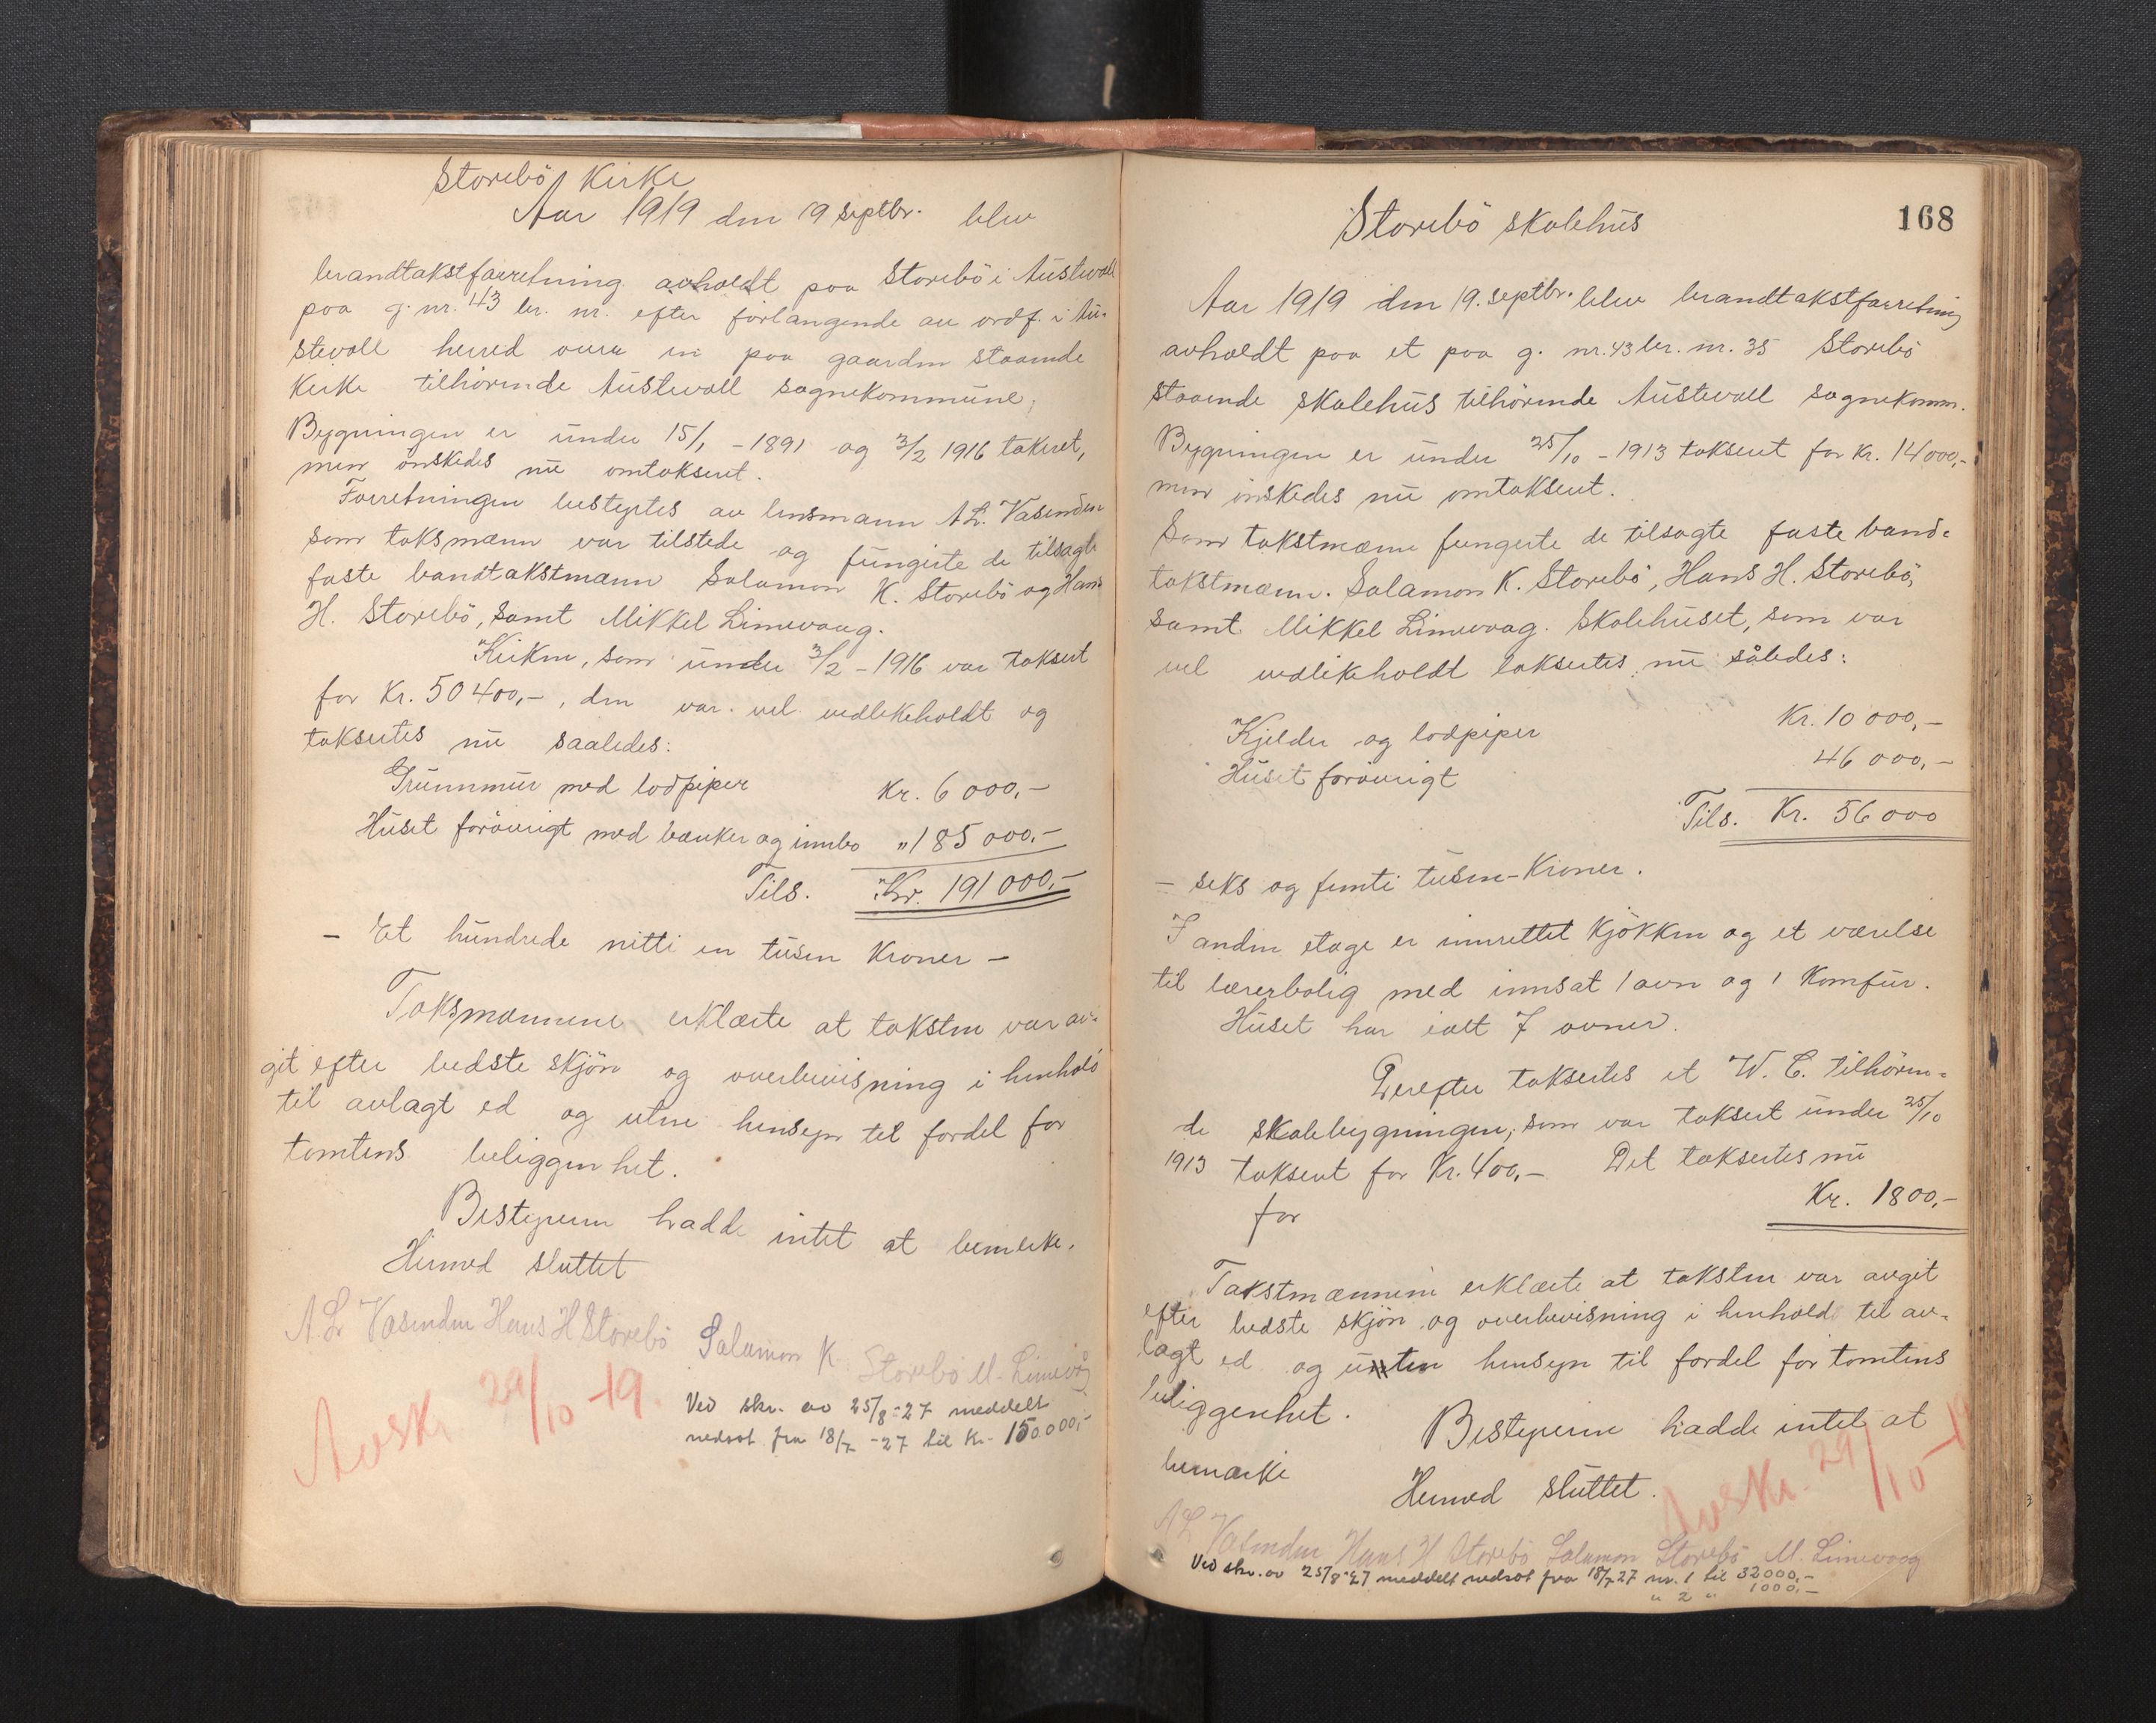 Storebö Kirke
Aar 1919 den 19 septbr. blev
brandtakstforretning avholdt paa Storebö i Austevoll
paa g. nr. 43 br. nr. efter forlangende av ordf. i Au-
stevoll herred over en paa gaarden staaende
Kirke tilhörende Austevoll sognekommune,
Bygningen er under 15/1 - 1891 og 3/2 1916 takseret,
men önskedes nu omtaksert.
Forretningen bestyrtes av lensmann A L. Vasenden
som taksmænn var tilstede og fungerte de tilsagte
faste brandtakstmænn Salamon K. Storebö og Hans
H. Storebö, samt Mikkel Limevaag.
Kirken, som under 3/2 - 1916 var taksert
for Kr. 50 400,-, den var vel vedlikeholdt og
taksertes nu saaledes:
Grunnmur med lodpiper Kr. 6 000,-
Huset forövrigt med bænker og innbo " 185 000,-
Tils. Kr. 191 000,-
- Et hundrede nitti en tusen Kroner -
Taksmænnene erklærte at taksten var av-
git efter bedste skjön og overbevisning i henhold
til avlagt ed og uten hensyn til fordel for
tomtens beliggenhet.
Bestyreren hadde intet at bemerke.
Hermed sluttet
A. L. Vasenden Hans H Storebö Salamon K. Storebö M. Limevåg
Avskr. 29/10 -19.
Ved skr. av 25/8-27 meddelt
nedsat fra 18/7 -27 til Kr. 150.000,-
168
Storebö skolehus
Aar 1919 den 19. septbr. blev brandtakstforretning
avholdt paa et paa g. nr. 43 br. nr. 35 Storebö
staaende skolehus tilhörende Austevoll sognekomm.
Bygningen er under 25/10 - 1913 taksert for Kr. 14000,-
men önskedes nu omtaksert.
Som takstmænn fungerte de tilsagte faste brand-
takstmænn. Salamon K. Storebö, Hans H. Storebö,
samt Mikkel Limevaag. Skolehuset, som var
vel vedlikeholdt taksertes nu således:
Kjelder og lodpiper Kr. 10 000,-
Huset forövrigt 46 000,-
Tils. Kr. 56 000
- seks og femti tusen-Kroner.
I anden etage er innrettet Kjökken og et værelse
til lærerbolig med innsat 1 ovn og 1 Komfur.
Huset har ialt 7 ovner.
Derefter taksertes et W. C. tilhören-
de skolebygningen, som var taksert under 25/10
1913 taksert for Kr. 400,- Det taksertes nu
for Kr. 1800,-
Takstmænnene erklærte at taksten var avgit
efter bedste skjön og overbevisning i henhold til av-
lagt ed og uten hensyn til fordel for tomtens
beliggenhet. Bestyreren hadde intet at
bemærke
Hermed sluttet.
Avskr. 29/10 -19
A L Vasenden Hans H Storebö Salamon Storebö M. Limevaag
Ved skr. av 25/8-27 meddelt nedsat fra 18/7 27 nr. 1 til 32000,-
" 2 " 1000,-